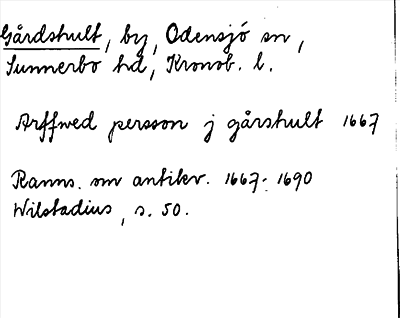 Gårdshult, by, Odensjö sn,
Sunnerbo hd, Kronob. l.
Arffwed persson j gårshult 1667
Ranns. om antikv. 1667-1690
Wilstadius, s. 50.